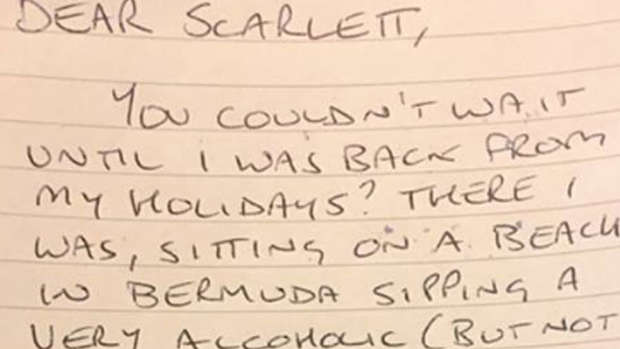 DEAR SCARLETT,
YOU COULDN'T WAIT
UNTIL I WAS BACK FROM
MY HOLIDAYS? THERE I
WAS, SITTING ON A BEACH
IN BERMUDA SIPPING A
VERY ALCOHOLIC (BUT NOT